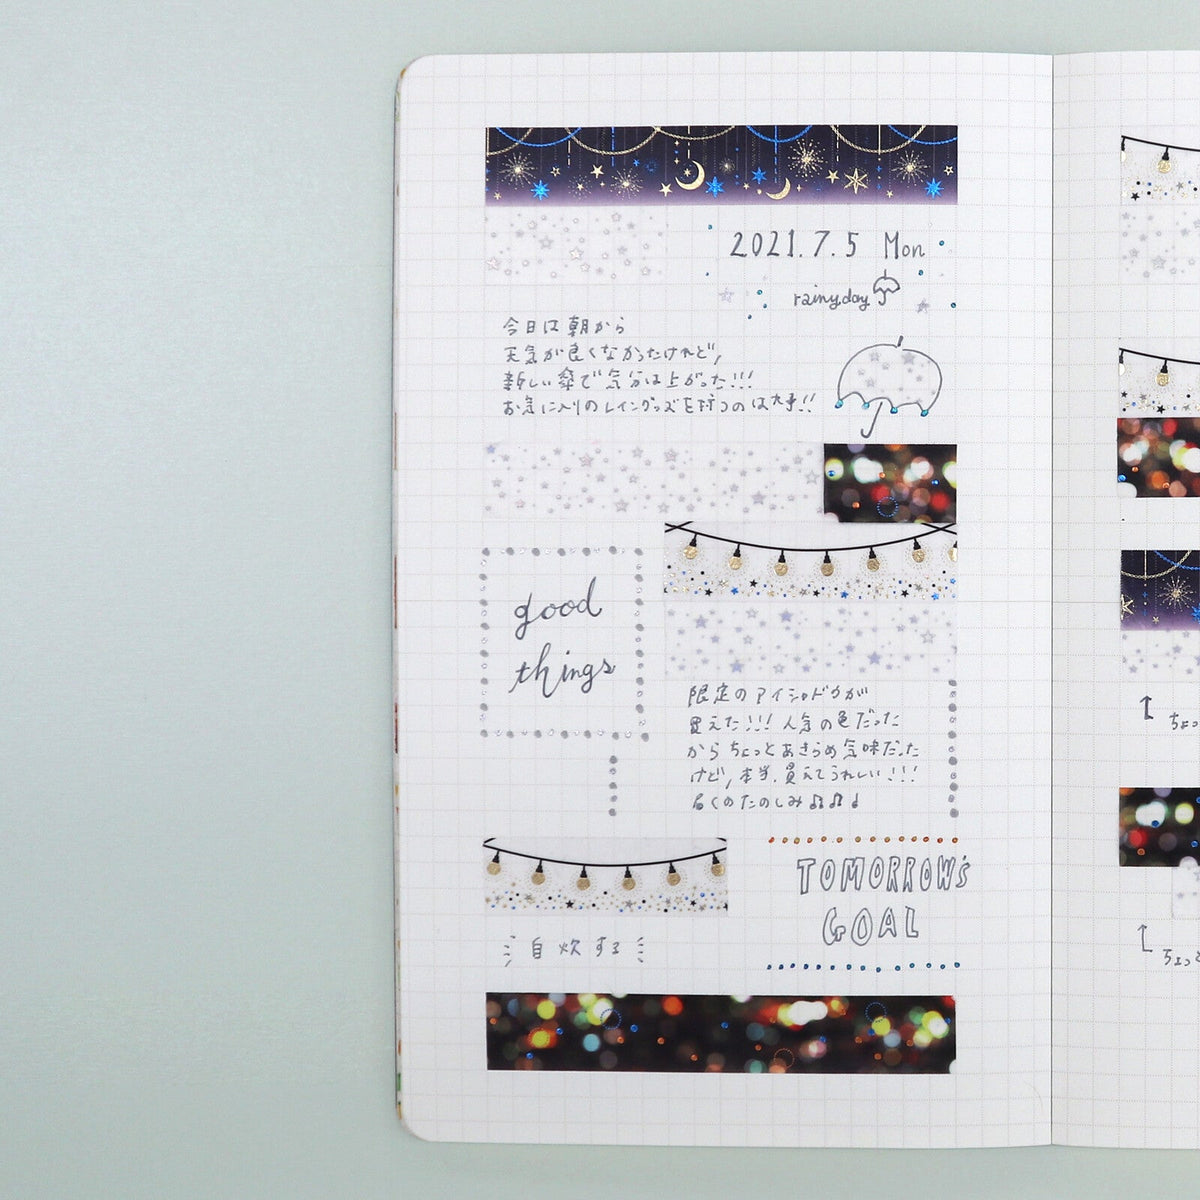 2021.7.5 Mon
rainy day
今日は朝から
天気が良くなかったけれど,
新しい傘で気分は上がった!!!
お気に入りのレイングッズを持つのは大事!!
good
things
限定のアイシャドウが
買えた!!! 人気の色だった
からちょっとあきらめ気味だった
けど, 本当, 買えてうれしい!!!
届くのたのしみ♫♫♩
TOMORROW's
GOAL
自炊する
ちょっ
ちょっと